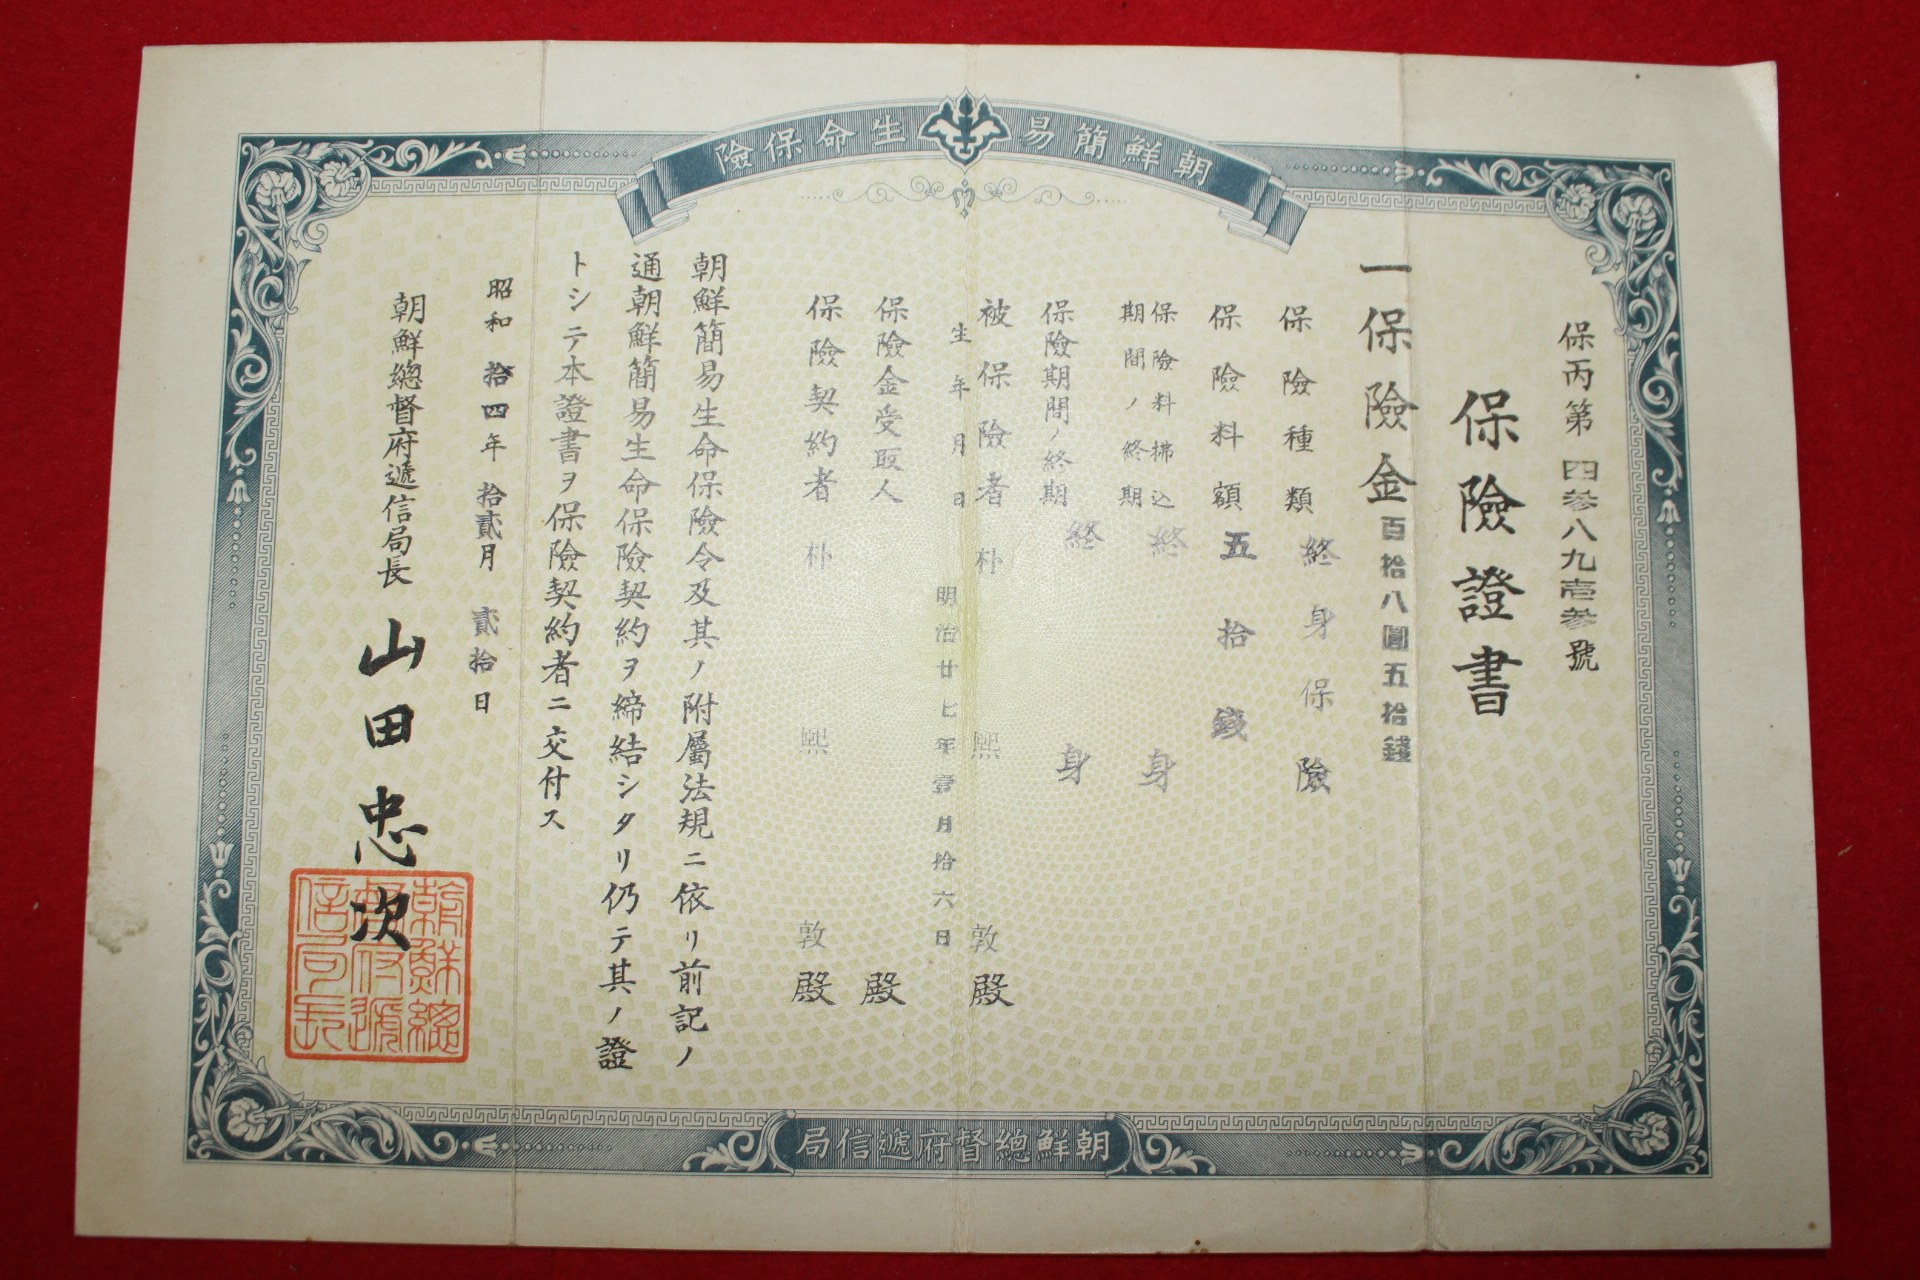 朝鮮簡易生命保險
保丙第四参八九壱参號
保險證書
一保險金百拾八圓五拾錢
保險種類 終身保險
保險料額 五拾錢
保險料拂込
期間ノ終期 終身
保險期間ノ終期 終身
被保險者 朴熙敦殿
生年月日 明治廿七年壹月拾六日
保險金受取人 殿
保險契約者 朴熙敦殿
朝鮮簡易生命保險令及其ノ附屬法規ニ依リ前記ノ
通朝鮮簡易生命保險契約ヲ締結シタリ仍テ其ノ證
トシテ本證書ヲ保險契約者ニ交付ス
昭和拾四年拾貳月貳拾日
朝鮮總督府遞信局長 山田忠次
朝鮮總
督府遞
信局長
朝鮮總督府遞信局